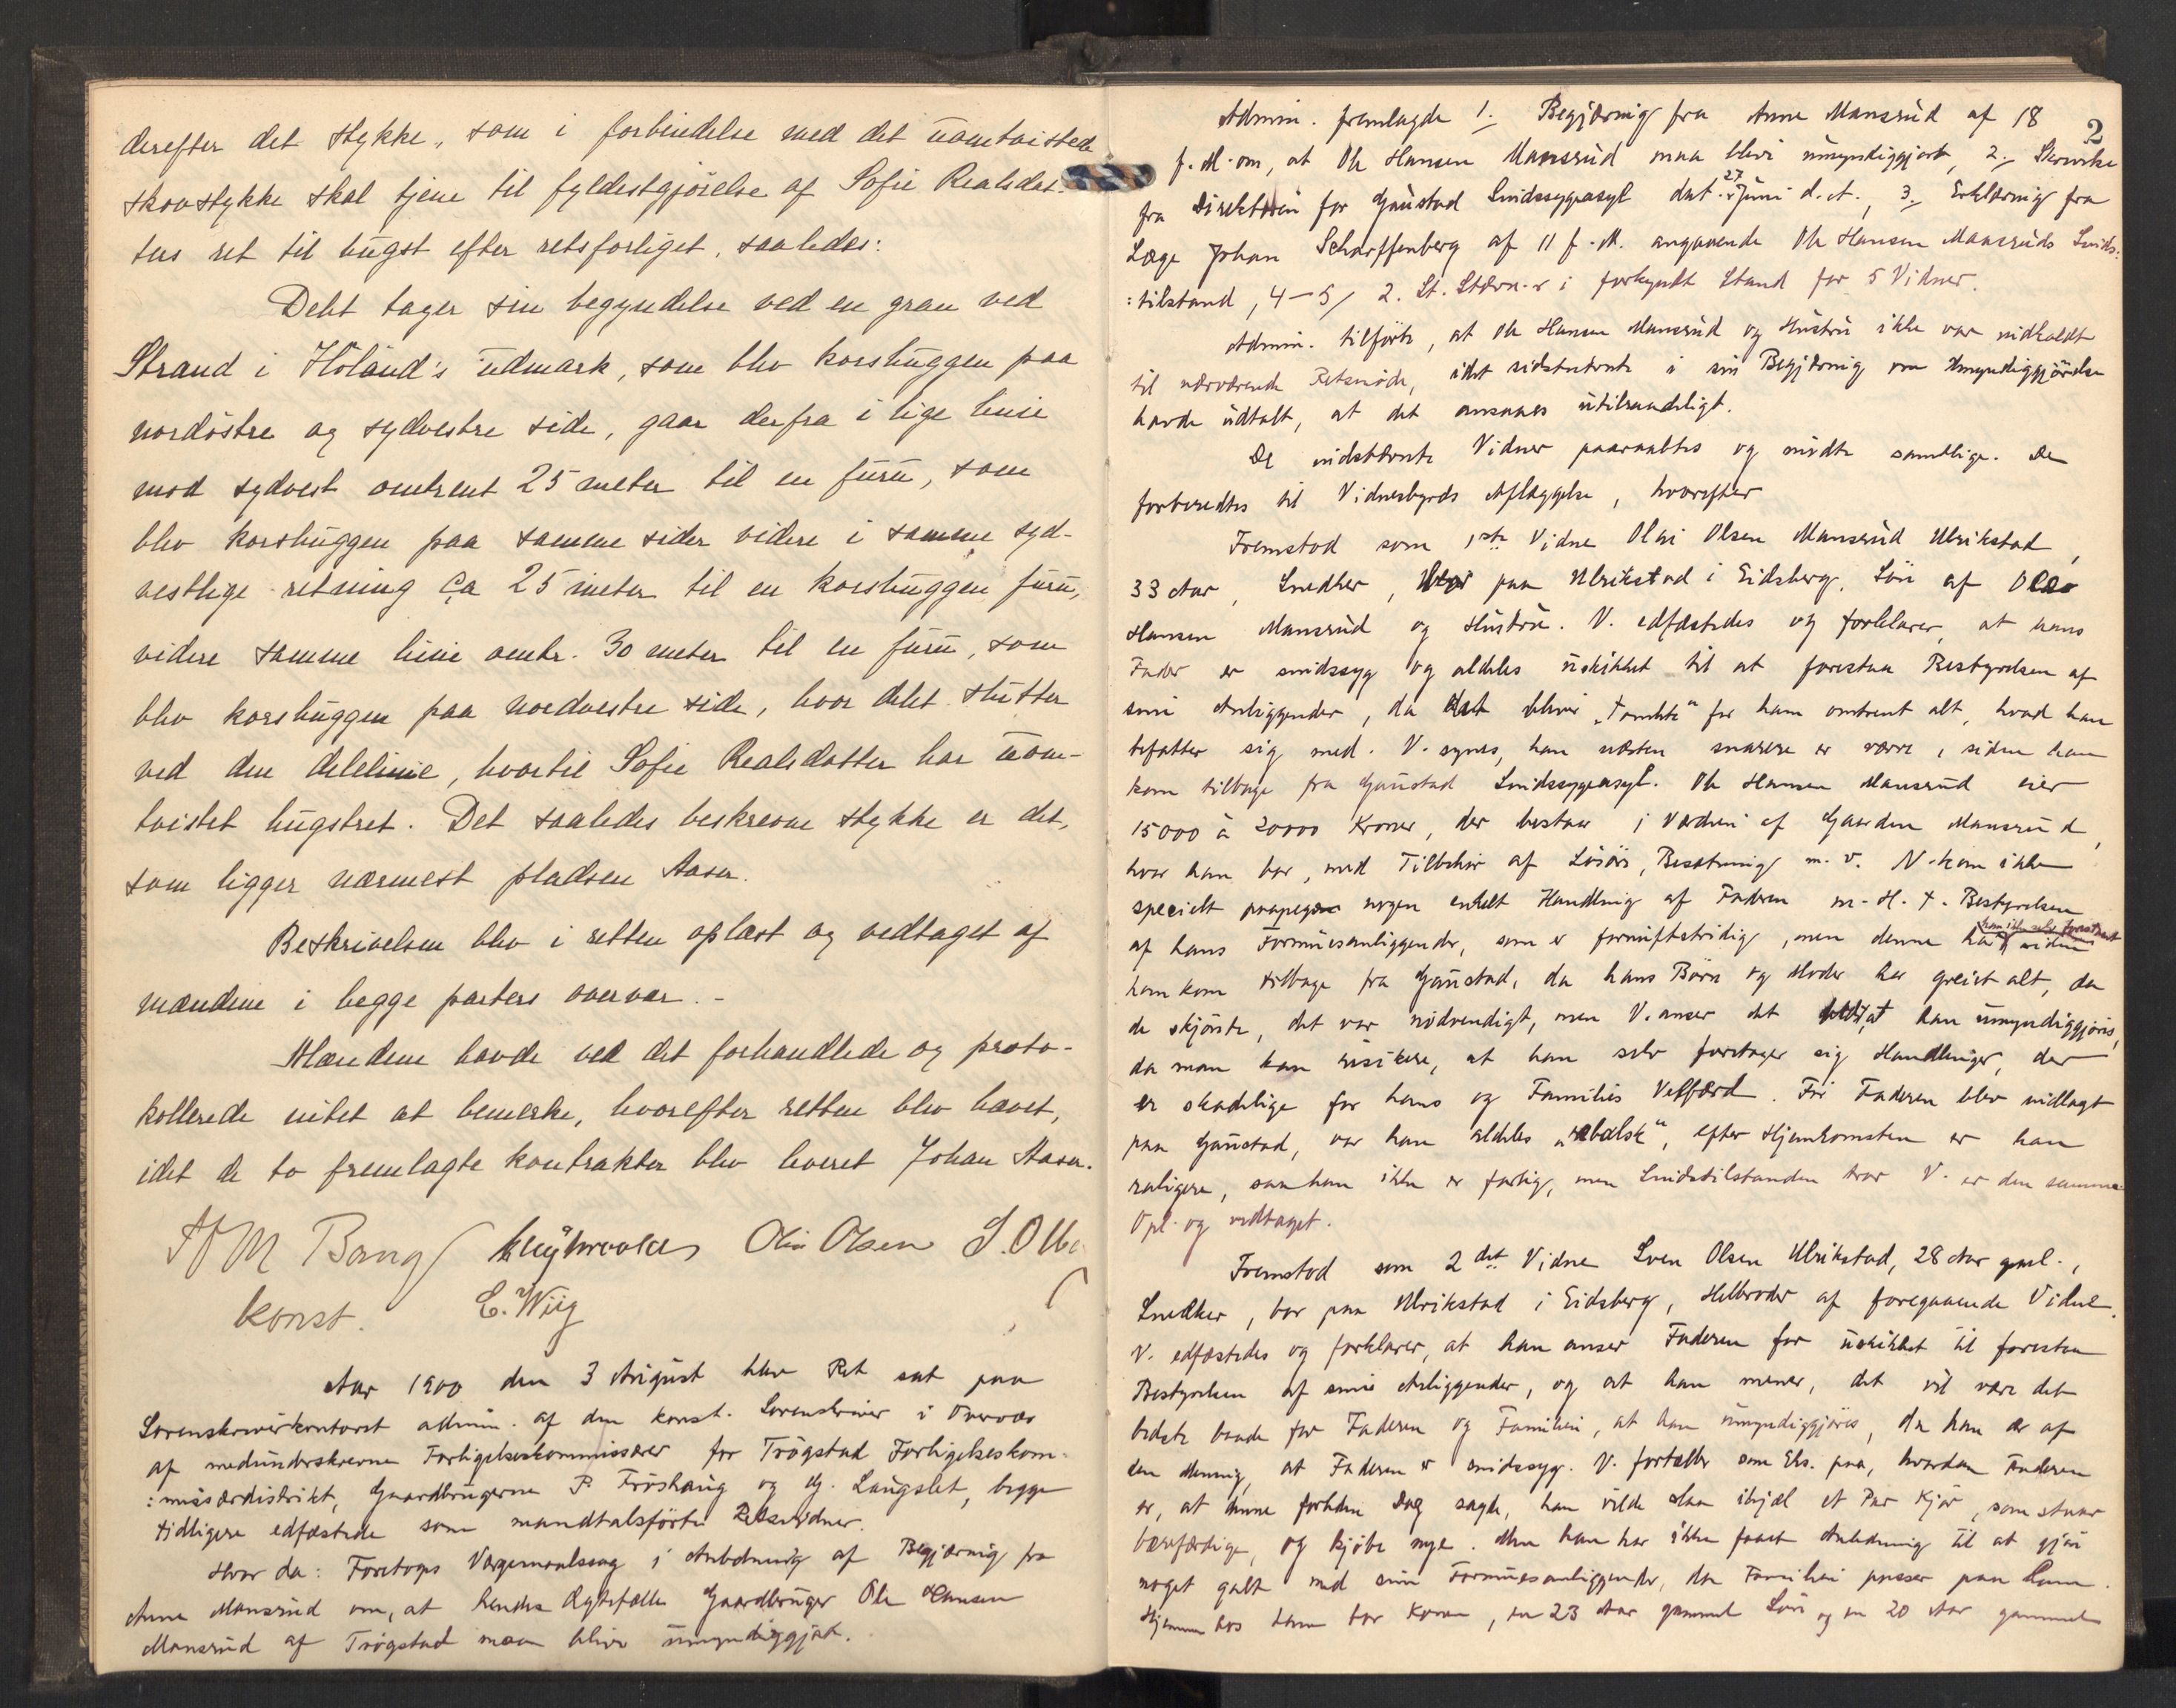 derefter det stykke, som i forbindelse med det uomtvistede
skovstykke skal tjene til fyldestgjörelse af Sofie Realsdat-
ters ret til hugst efter retsforliget, saaledes:
Delet tager sin begyndelse ved en gran ved
Strand i Höland's udmark, som blev korshuggen paa
nordöstre og sydvestre side, gaar derfra i lige linie
mod sydvest omtrent 25 meter til en furu, som
blev korshuggen paa samme sider videre i samme syd-
vestlige retning ca 25 meter til en korshuggen furu,
videre samme linie omtr. 30 meter til en furu, som
blev korshuggen paa nordvestre side, hvor delet slutter
ved den delelinie, hvortil Sofie Realsdatter har uom-
tvistet hugstret. Det saaledes beskrevne stykke er det,
som ligger nærmest pladsen Aasen.
Beskrivelsen blev i retten oplæst og vedtaget af
mændene i begge parters overvær. -
Mændene havde ved det forhandlede og proto-
kollerede intet at bemerke, hvorefter retten blev hævet,
idet de to fremlagte kontrakter blev leveret Johan Aasen.
Bang Olin Olsen
konst. E. Wiig
Aar 1900 den 3 August blev Ret sat paa
Sorenskriverkontoret admin. af den konst. Sorenskriver i Overvær
af medunderskrevne Forligelseskommissærer for Trögstad Forligelseskom-
:missærdistrikt, Gaardbrugerne P. Fröshaug og G. Langslet, begge
tidligere edfæstede som mandtalsförte Retsvidner.
Hvor da: Foretoges Værgemaalssag i Anledning af Begjæring fra
Anne Mansrud om, at hendes Ægtefælle Gaardbruger Ole Hansen
Mansrud af Trögstad maa blive umyndiggjort.
2
Admin. fremlagde 1./ Begjæring fra Anne Mansrud af 18
f. M. om, at Ole Hansen Mansrud maa blive umyndiggjort, 2./ Skrivelse
fra Direktören for Gaustad Sindssygeasyl dat. 27 Juni d. A., 3./ Erklæring fra
Læge Johan Scharffenberg af 11 f. M. angaaende Ole Hansen Mansruds Sinds:
:tilstand, 4-5/ 2. St. Stævn.r i forkyndt Stand for 5 Vidner.
Admin. tilförte, at Ole Hansen Mansrud og Hustru ikke var indkaldt
til nærværende Retsmöde, idet sidstnævnte i sin Begjæring om Umyndiggjörelse
havde udtalt, at det ansaaes utilraadeligt.
De indstævnte Vidner paaraabtes og mödte samtlige. De
forberedtes til Vidnesbyrds Aflæggelse, hvorefter
Fremstod som 1ste Vidne Olai Olsen Mansrud Ulrikstad,
33 Aar, Snedker, paa Ulrikstad i Eidsberg, Sön af Ole
Hansen Mansrud og Hustru. V. edfæstedes og forklarer, at hans
Fader er sindssyg og aldeles uskikket til at forestaa Bestyrelsen af
sine Anliggender, da det bliver „ for ham omtrent alt, hvad han
befatter sig med. V. synes, han næsten snarere er værre, siden han
kom tilbage fra Gaustad Sindssygeasyl. Ole Hansen Mansrud eier
15000 à 20000 Kroner, der bestaar i Værdien af Gaarden Mansrud,
hvor han bor, med Tilbehör af Lösöre, Besætning m. v. V. kan ikke
specielt paapege nogen enkelt Handling af Faderen m. H. t. Bestyrelsen
af hans Formuesanliggender, som er fornuftstridig, men denne har han ikke selv forestaaet siden
han kom tilbage fra Gaustad, da hans Börn og Moder har greiet alt, da
de skjönte, det var nödvendigt, men V. anser det bedst, at han umyndiggjöres,
da man kan risikere, at han selv foretager sig Handlinger, der
er skadelige for hans og Familiens Velfærd. För Faderen blev indlagt
paa Gaustad, var han aldeles „rebelsk", efter Hjemkomsten er han
roligere, saa han ikke er farlig, men Sindstilstanden tror V. er den samme
Opl. og vedtaget.
Fremstod som 2det Vidne Sven Olsen Ulrikstad, 28 Aar gml.,
Snedker, bor paa Ulrikstad i Eidsberg, Helbroder af foregaaende Vidne.
V. edfæstedes og forklarer, at han anser Faderen for uskikket til forestaa
Bestyrelsen af sine Anliggender, og at han mener, det vil være det
bedste baade for Faderen og Familien, at han umyndiggjöres, da han er af
den Mening, at Faderen er sindssyg. V. fortæller som Eks. paa, hvordan Faderen
er, at denne forleden Dag sagde, han vilde slaa ihjæl et Par Kjör, som staar
bæreferdige, og kjöbe nye. Men han har ikke faaet Anledning til at gjöre
noget galt med sine Formuesanliggender, da Familien passer paa ham.
Hjemme hos ham bor Konen, en 23 Aar gammel Sön og en 20 Aar gammel